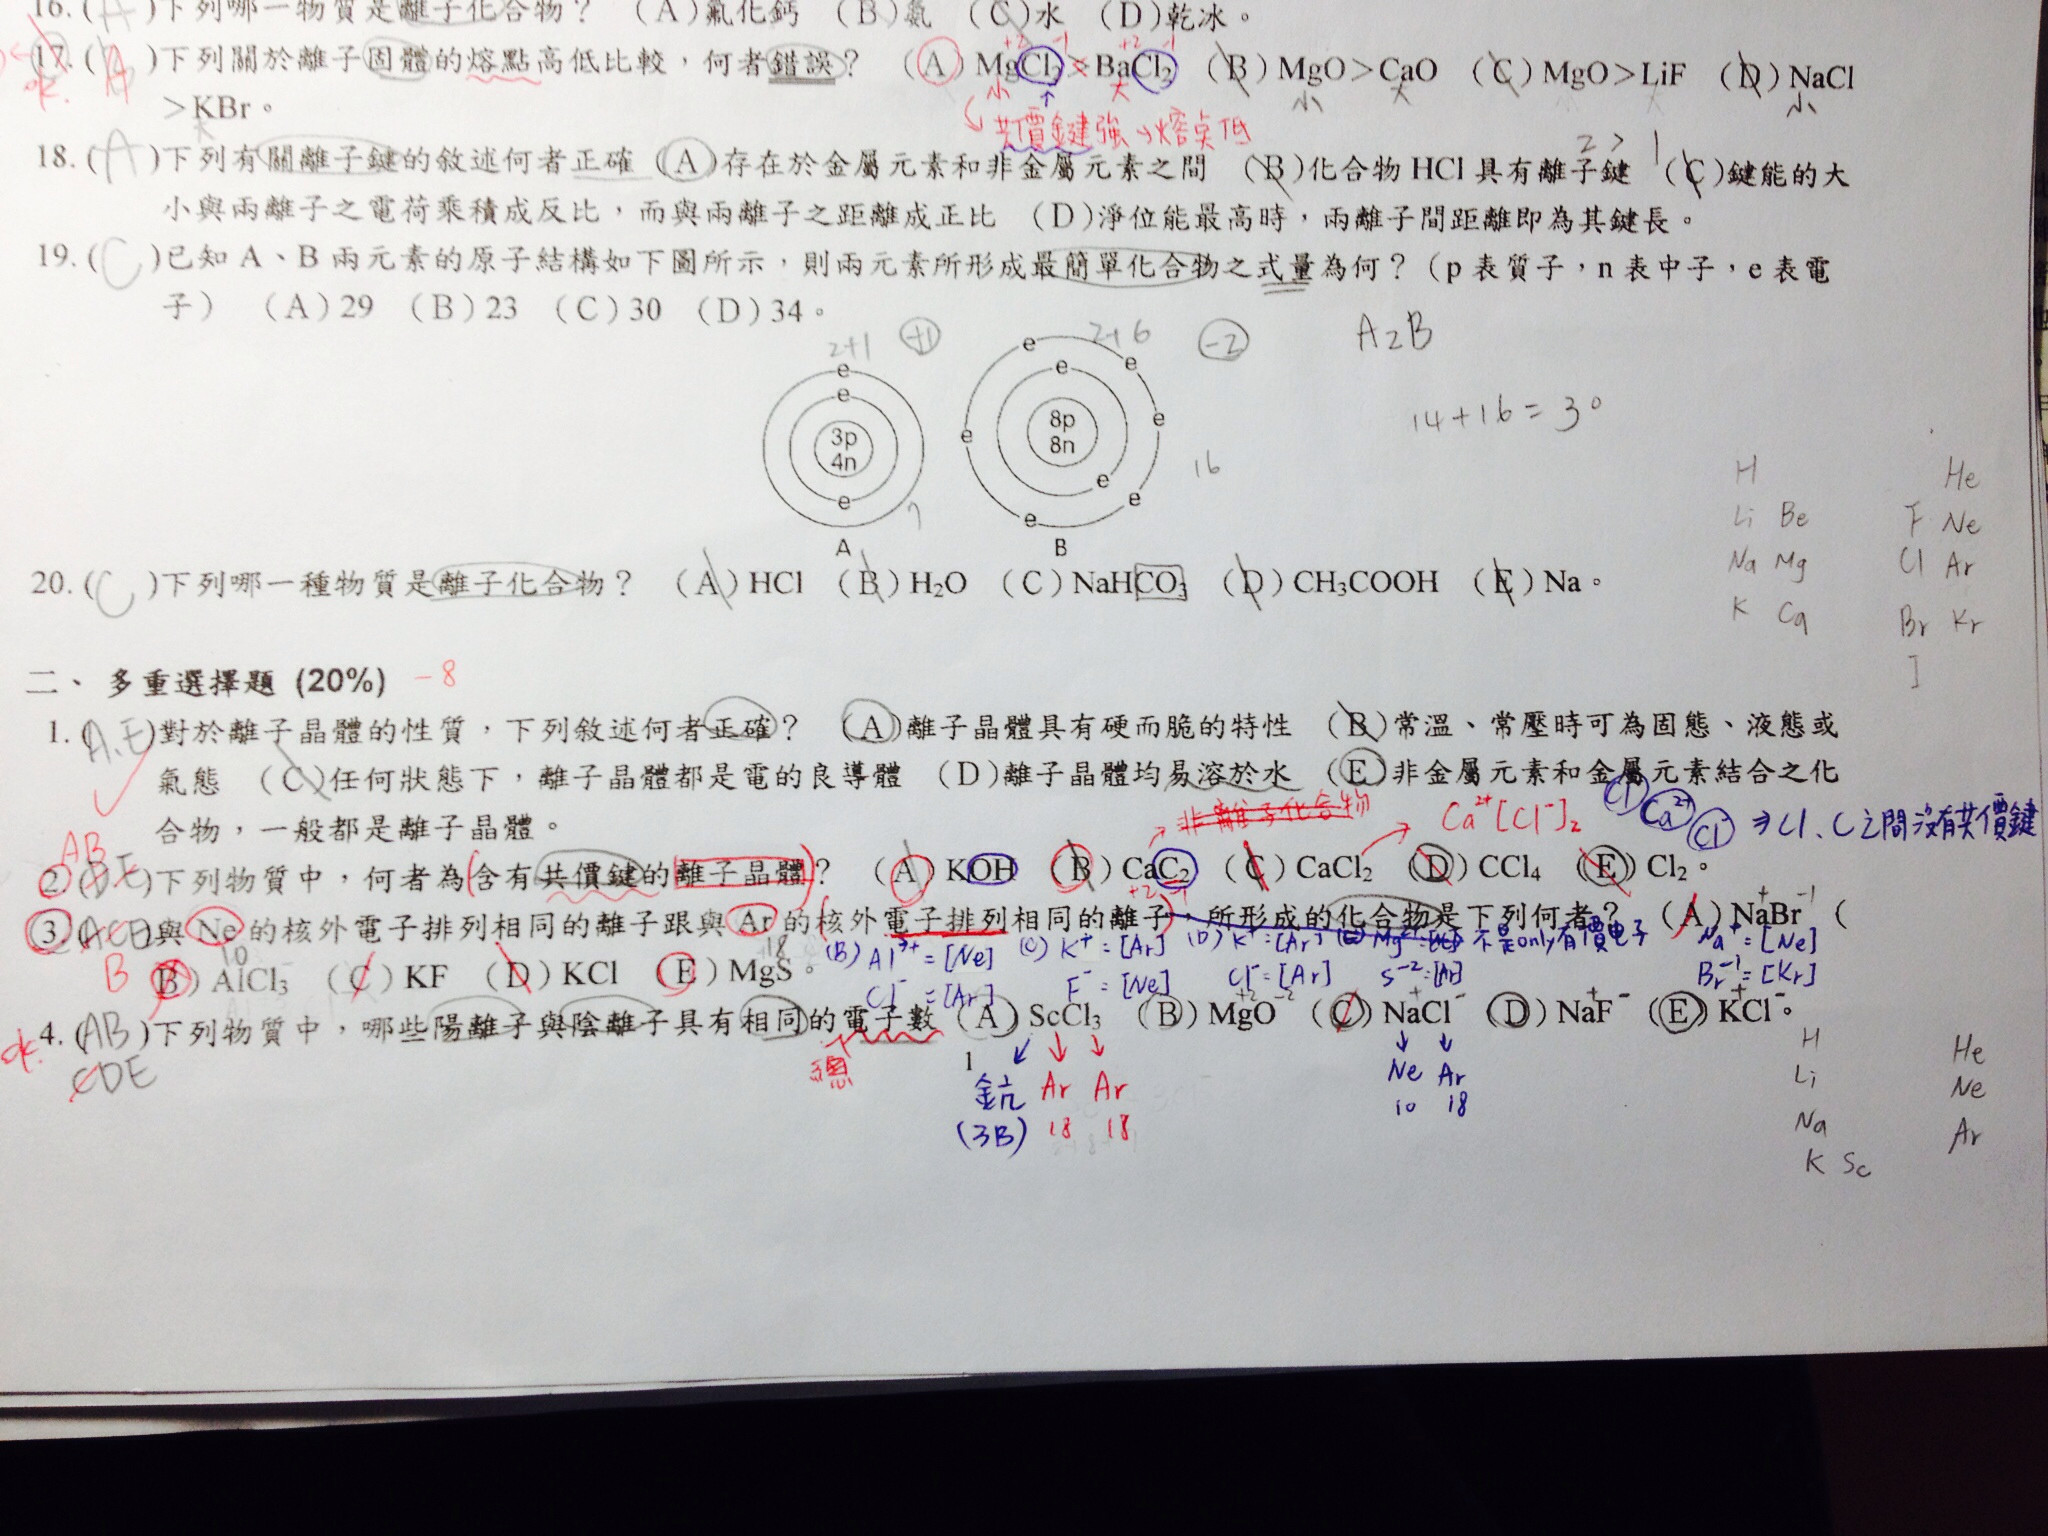 16.(A)下列哪一物質是離子化合物？ (A)氟化鈣 (B)氨 (C)水 (D)乾冰。
17.(A)下列關於離子固體的熔點高低比較，何者錯誤？ (A) MgCl₂<BaCl₂ (B) MgO>CaO (C) MgO>LiF (D) NaCl
+2 -1 +2 -1
ok.
>KBr。
小 大 小 大 小
大
共價鍵強→熔點低
2 > 1
18.(A)下列有關離子鍵的敘述何者正確 (A)存在於金屬元素和非金屬元素之間 (B)化合物 HCl 具有離子鍵 (C)鍵能的大
小與兩離子之電荷乘積成反比，而與兩離子之距離成正比 (D)淨位能最高時，兩離子間距離即為其鍵長。
19.(C)已知 A、B 兩元素的原子結構如下圖所示，則兩元素所形成最簡單化合物之式量為何？（p 表質子，n 表中子，e 表電
子） (A)29 (B)23 (C)30 (D)34。
2+1 +1 2+6 -2 A2B
e e e e e e e e e e e
3p
4n
8p
8n
14+16=30
7 16
A B
H He
Li Be F Ne
Na Mg Cl Ar
K Ca Br Kr
I
20.(C)下列哪一種物質是離子化合物？ (A) HCl (B) H₂O (C) NaHCO₃ (D) CH₃COOH (E) Na。
二、 多重選擇題 (20%) -8
1.(A.E)對於離子晶體的性質，下列敘述何者正確？ (A)離子晶體具有硬而脆的特性 (B)常溫、常壓時可為固態、液態或
氣態 (C)任何狀態下，離子晶體都是電的良導體 (D)離子晶體均易溶於水 (E)非金屬元素和金屬元素結合之化
合物，一般都是離子晶體。
非離子化合物 Ca²⁺[Cl⁻]₂ Cl⁻ Ca²⁺ Cl⁻ ⇒Cl、C之間沒有共價鍵
AB
2.(DE)下列物質中，何者為含有共價鍵的離子晶體？ (A) KOH (B) CaC₂ (C) CaCl₂ (D) CCl₄ (E) Cl₂。
+2 -1
3.(ACE)與 Ne 的核外電子排列相同的離子跟與 Ar 的核外電子排列相同的離子，所形成的化合物是下列何者？ (A) NaBr (
+ -1
B
10 18
B) AlCl₃ (C) KF (D) KCl (E) MgS。
(B) Al³⁺=[Ne] (C) K⁺=[Ar] (D) K⁺=[Ar] (E) Mg²⁺ 不是only有價电子 Na⁺=[Ne]
Cl⁻=[Ar] F⁻=[Ne] Cl⁻=[Ar] S⁻²=[Ar] Br⁻¹=[Kr]
ok.
4.(AB)下列物質中，哪些陽離子與陰離子具有相同的電子數 (A) ScCl₃ (B) MgO (C) NaCl (D) NaF (E) KCl。
+2 -2 + - + - + -
CDE
總
1
鈧 Ar Ar
(3B) 18 18
Ne Ar
10 18
H He
Li Ne
Na Ar
K Sc